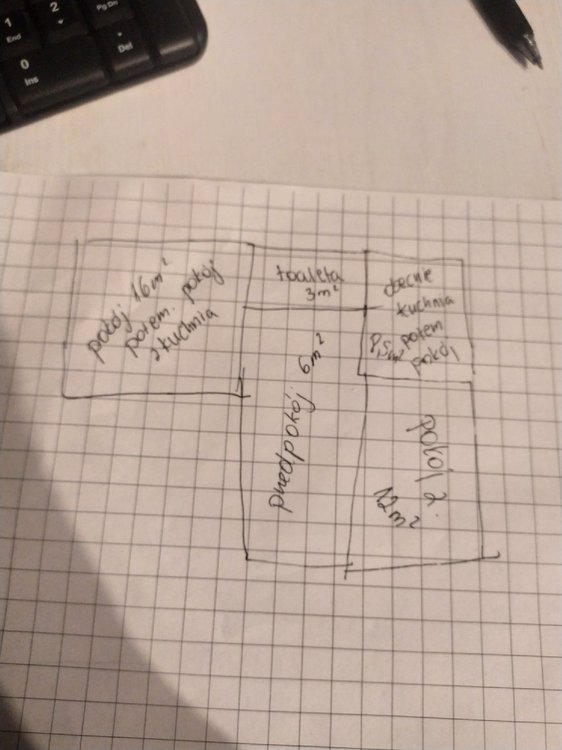 1
End
2
Pg Dn
0
Ins
.
Del
pokój 16m²
potem. pokój
z kuchnia
toaleta
3m²
obecnie
kuchnia
8,5m² potem
pokój
przedpokój 6m²
pokój 2.
12m²